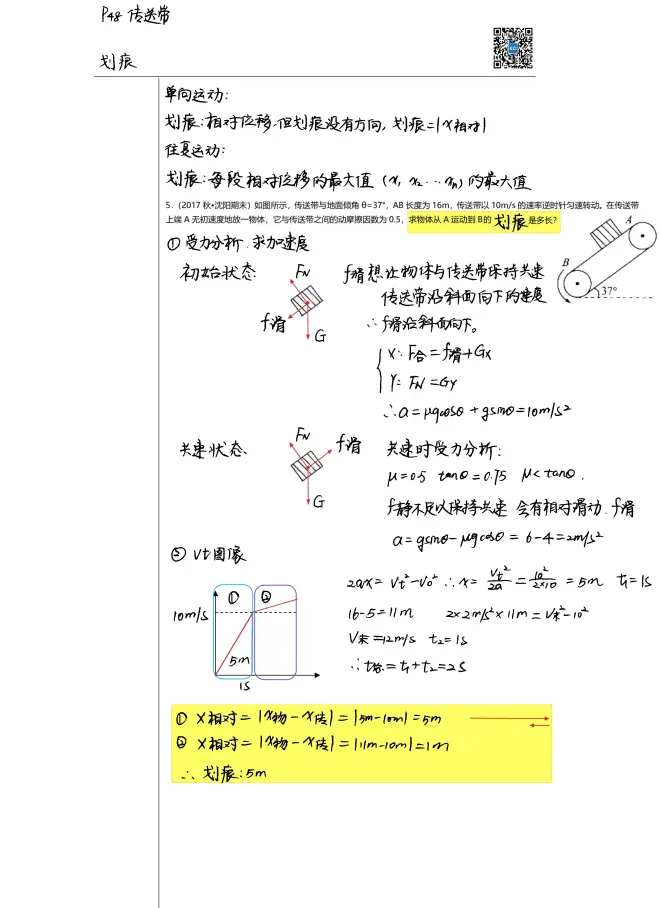 P48 传送带
划痕
单向运动:
划痕:相对位移,但划痕没有方向,划痕=|x相对|
往复运动:
划痕:每段相对位移的最大值(x₁ x₂ … xₙ)的最大值
5.(2017 秋•沈阳期末)如图所示,传送带与地面倾角 θ=37°,AB 长度为 16m,传送带以 10m/s 的速率逆时针匀速转动。在传送带
上端 A 无初速度地放一物体,它与传送带之间的动摩擦因数为 0.5,求物体从 A 运动到 B的 划痕 是多长?
A
B
37°
① 受力分析.求加速度
初始状态
FN
f滑
G
f滑想让物体与传送带保持共速
传送带沿斜面向下的速度
∴f滑沿斜面向下。
X: F合=f滑+Gx
Y: FN=Gy
∴a=μgcosθ+gsinθ=10m/s²
共速状态.
FN
f滑
G
共速时受力分析:
μ=0.5 tanθ=0.75 μ<tanθ.
f静不足以保持共速 会有相对滑动.f滑
a=gsinθ-μgcosθ=6-4=2m/s²
② Vt图像
10m/s
①
②
5m
1s
2ax=Vt²-V0² ∴x=Vt²/2a=10²/2×10=5m t₁=1s
16-5=11m 2×2m/s²×11m=V末²-10²
V末=12m/s t₂=1s
∴t总=t₁+t₂=2s
① X相对=|X物-X传|=|5m-10m|=5m
② X相对=|X物-X传|=|11m-10m|=1m
∴ 划痕:5m